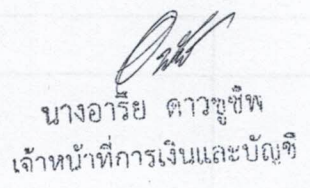 นางอารีย ดาวชูชีพ
เจ้าหน้าที่การเงินและบัญชี